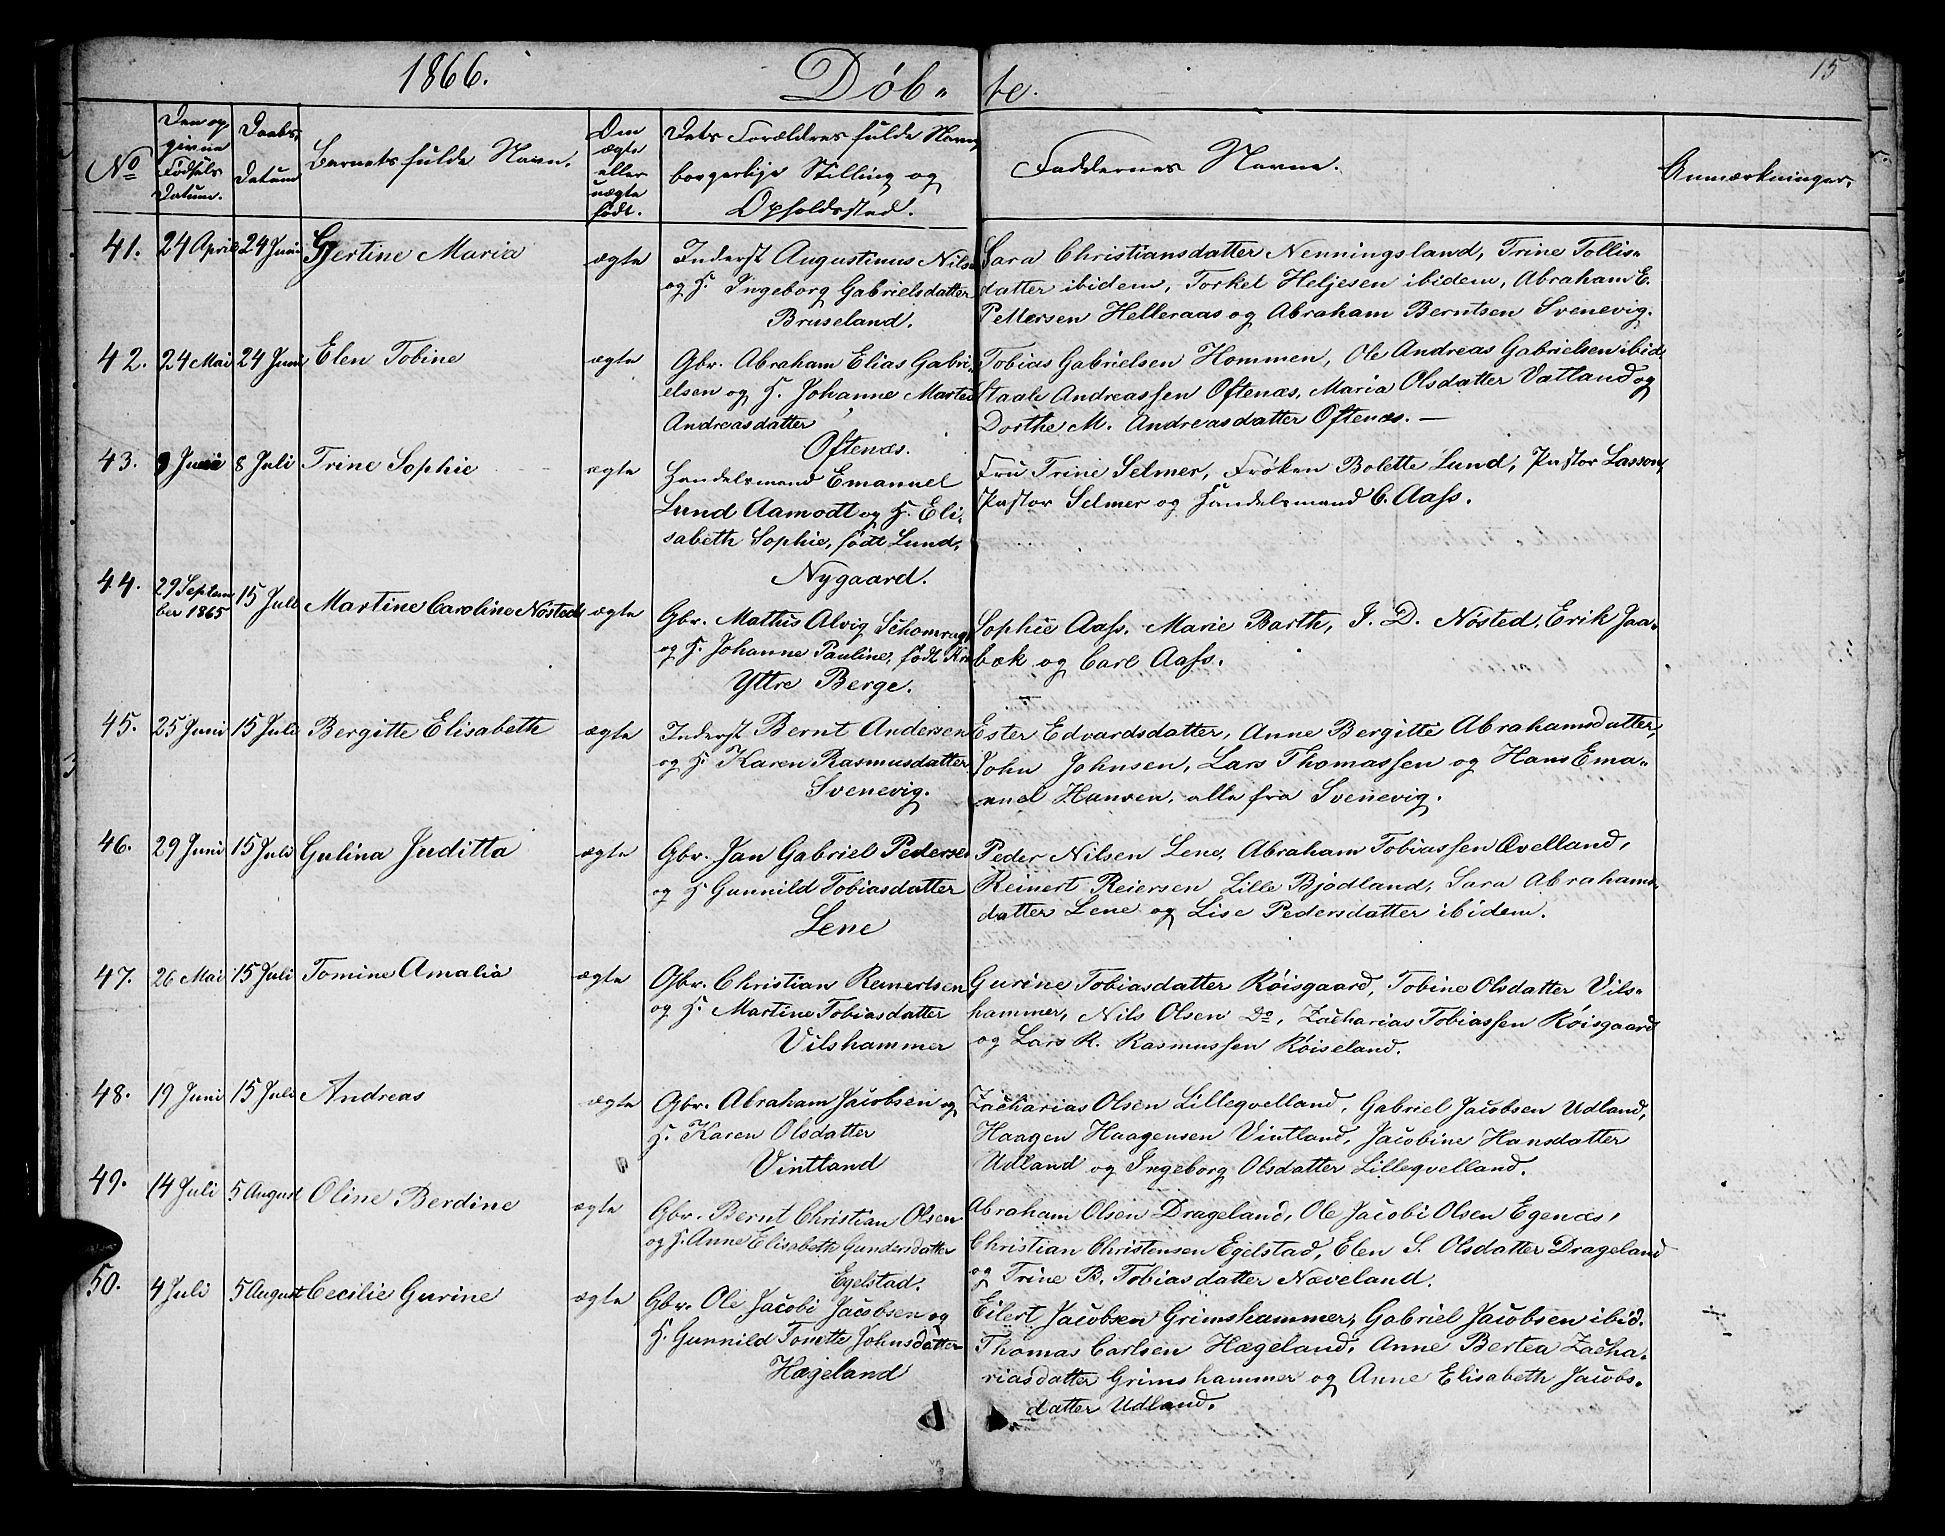 1866. Døb- te. 15
No
Den op
givne
Fødsels
Datum.
Daabs
Datum
Barnets fulde Navn.
Om
ægte
eller
uægte
født.
Dets Forældres fulde Navn,
borgerlige Stilling og
Opholdssted.
Faddernes Navne.
Anmærkninger.
41. 24 April 24 Juni Gjertine Maria ægte
Inderst Augustinus Nilsen
og H. Ingeborg Gabrielsdatter
Bruseland.
Sara Christiansdatter Nenningsland, Trine Tollis-
datter ibidem, Torkel Heljesen ibidem, Abraham E.
Pettersen Helleraas og Abraham Berntsen Svenevig.
42. 24 Mai 24 Juni Elen Tobine ægte
Gbr. Abraham Elias Gabri-
elsen og H. Johanne Martea
Andreasdatter
Oftenæs.
Tobias Gabrielsen Hommen, Ole Andreas Gabrielsen ibid
Staale Andreassen Oftenæs, Maria Olsdatter Vatland og
Dorthe M. Andreasdatter Oftenæs. —
43. 9 Juni 8 Juli Trine Sophie ægte
Handelsmand Emanuel
Lund Aamodt og H. Eli-
sabeth Sophie, født Lund,
Nygaard.
Fru Trine Selmer, Frøken Bolette Lund, Pastor Lasson,
Pastor Selmer og Handelsmand C. Aass.
44. 29 Septem
ber 1865 15 Juli Martine Caroline Nøsted ægte
Gbr. Mathus Alvig Schomrag,
og H. Johanne Pauline, født
Yttre Berge.
Sophie Aass. Marie Barth, J. D. Nøsted, Erik Jaa-
bæk og Carl Aass.
45. 25 Juni 15 Juli Bergitte Elisabeth ægte
Inderst Bernt Andersen
og H. Karen Rasmusdatter
Svenevig.
Ester Edvardsdatter, Anne Bergitte Abrahamsdatter,
John Johnsen, Lars Thomassen og Hans Ema-
nuel Hansen, alle fra Svenevig.
46. 29 Juni 15 Juli Gulina Juditta ægte
Gbr. Jan Gabriel Pedersen
og H Gunnild Tobiasdatter
Lene
Peder Nilsen Lene, Abraham Tobiassen Øvelland,
Reinert Reiersen Lille Bjødland, Sara Abrahams-
datter Lene og Lise Pedersdatter ibidem.
47. 26 Mai 15 Juli Tomine Amalia ægte
Gbr. Christian Reinertsen
og H. Martine Tobiasdatter
Vilshammer
Gurine Tobiasdatter Røisgaard, Tobine Olsdatter Vils-
hammer, Nils Olsen Do, Zacharias Tobiassen Røisgaard
og Lars R. Rasmussen Røiseland.
48. 19 Juni 15 Juli Andreas ægte
Gbr. Abraham Jacobsen og
H. Karen Olsdatter
Vintland
Zacharias Olsen Lilleqvelland, Gabriel Jacobsen Udland,
Haagen Haagensen Vintland, Jacobine Hansdatter
Udland og Ingeborg Olsdatter Lilleqvelland.
49. 14 Juli 5 August Oline Berdine ægte
Gbr. Bernt Christian Olsen
og H. Anne Elisabeth Gundersdatter
Egelstad.
Abraham Olsen Drageland, Ole Jacobi Olsen Egenæs,
Christian Christensen Egelstad, Elen S. Olsdatter Drageland
og Trine B. Tobiasdatter Næveland.
50. 4 Juli 5 August Cecilie Gurine ægte
Gbr. Ole Jacobi Jacobsen og
H. Gunnild Tomtte Johnsdatter
Hægeland
Eilert Jacobsen Grimshammer, Gabriel Jacobsen ibid.
Thomas Carlsen Hægeland, Anne Bertea Zacha-
riasdatter Grimshammer og Anne Elisabeth Jacobs-
datter Udland.